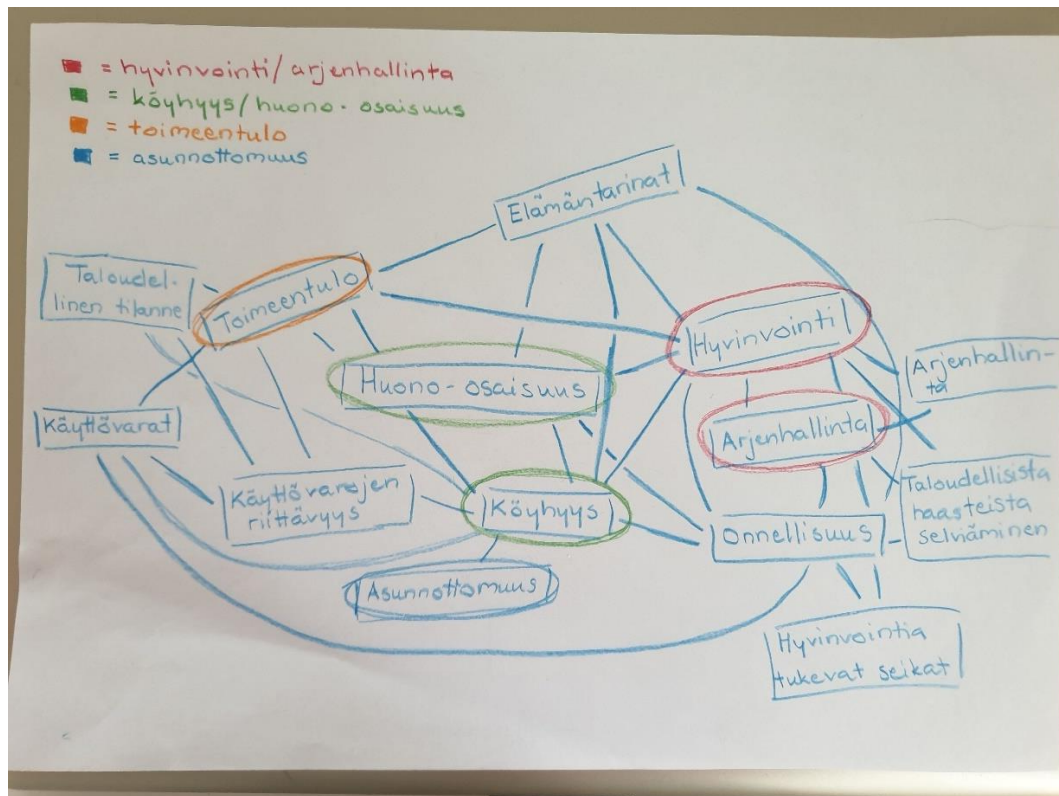 = hyvinvointi/arjenhallinta
= köyhyys/huono-osaisuus
= toimeentulo
= asunnottomuus
Elämäntarinat
Taloudel-
linen tilanne
Toimeentulo
Hyvinvointi
Huono-osaisuus
Arjenhallin-
ta
Käyttövarat
Arjenhallinta
Käyttövarojen
riittävyys
Köyhyys
Taloudellisista
haasteista
selviäminen
Onnellisuus
Asunnottomuus
Hyvinvointia
tukevat seikat